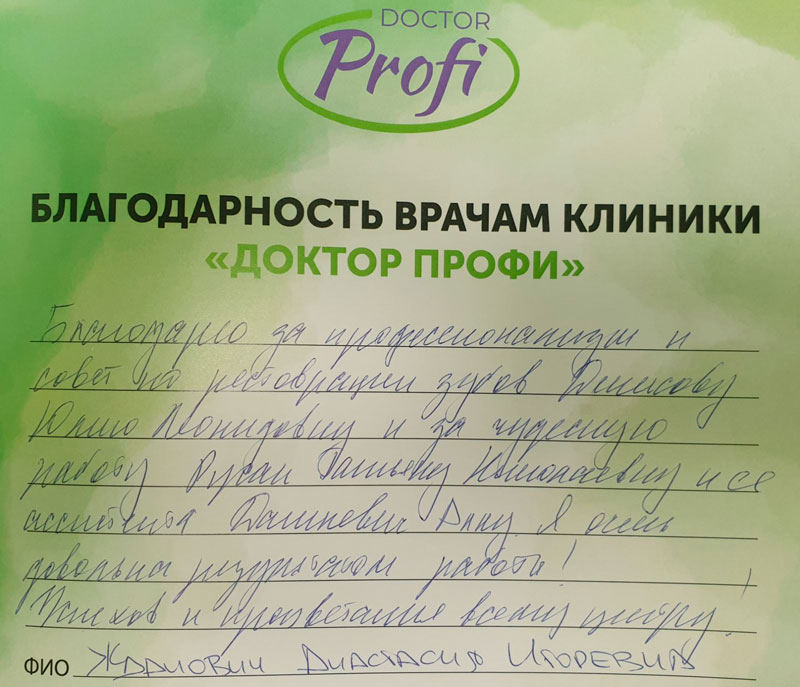 DOCTOR
Profi
БЛАГОДАРНОСТЬ ВРАЧАМ КЛИНИКИ
«ДОКТОР ПРОФИ»
Благодарю за профессионализм и
совет по реставрации зубов Денисову
Юлию Леонидовну и за чудесную
работу Русак Татьяну Николаевну и её
ассистента Дашкевич Анну. Я очень
довольна результатом работы!
Успехов и процветания всему центру!
ФИО Жданович Анастасия Игоревна